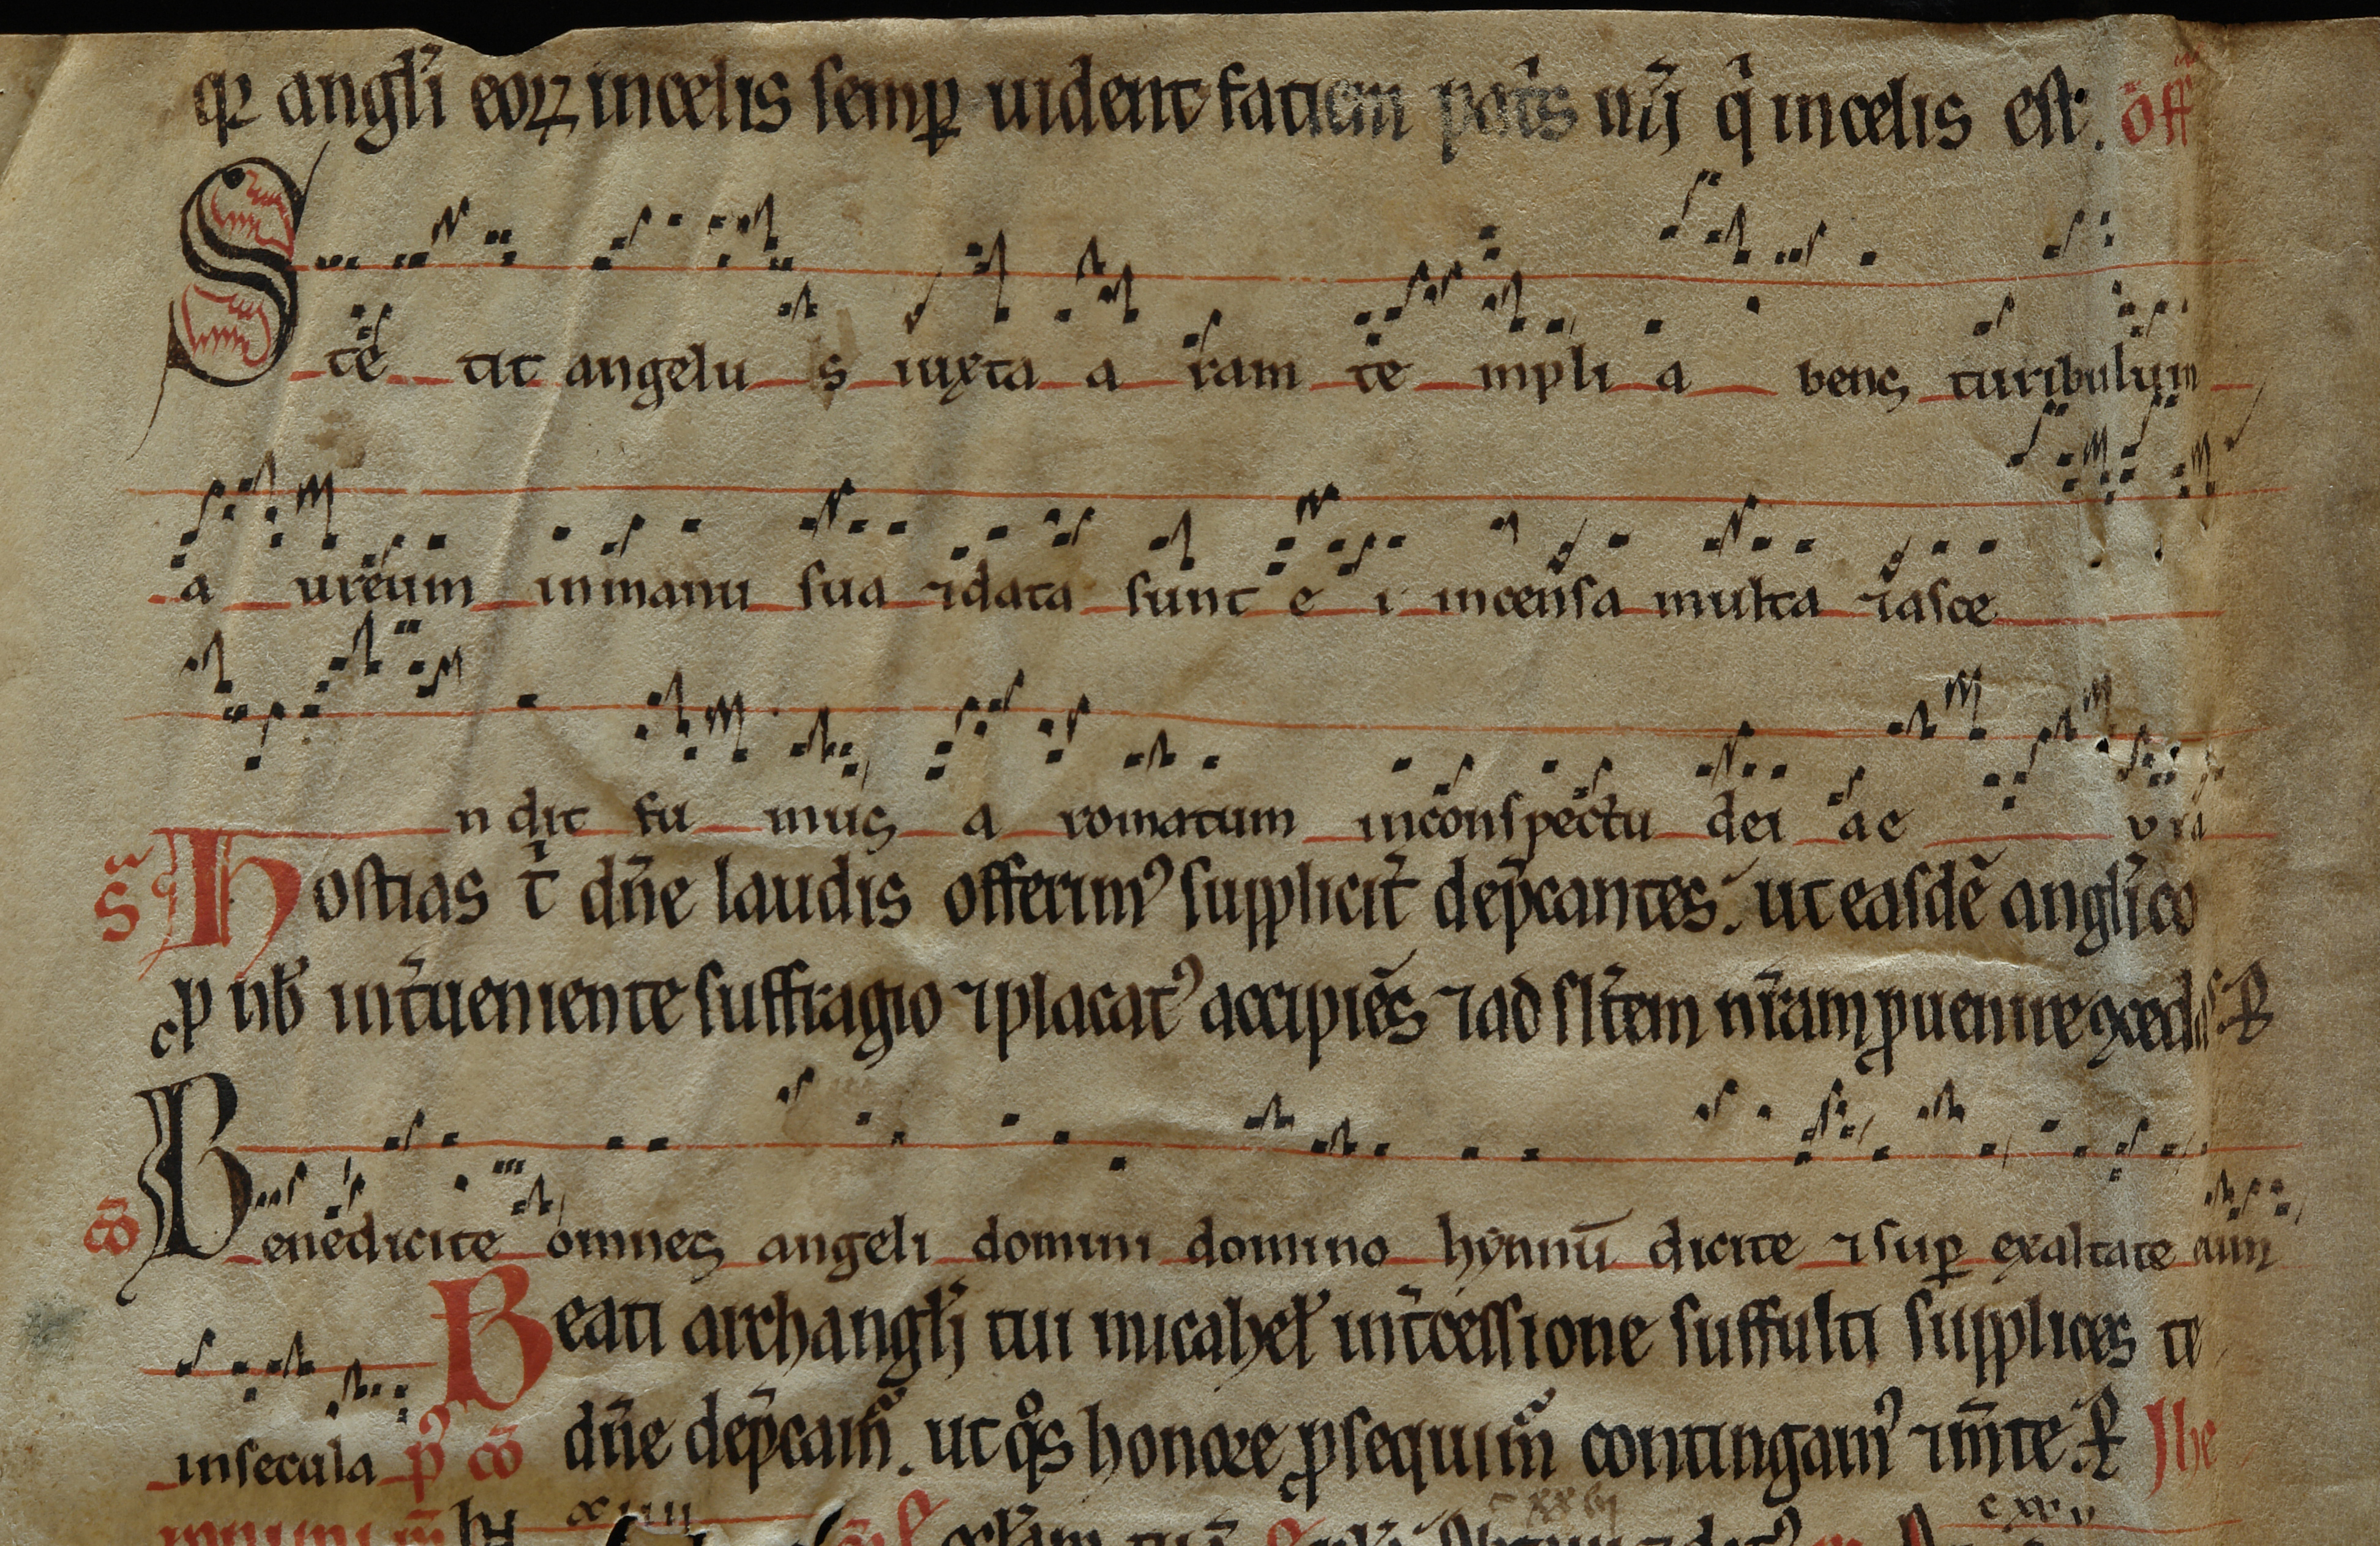 qꝛ angl̄i eoꝝ in celis semꝑ uident faciem pat̄s ur̄i q̇ in celis est. off̄
Stetit angelus iuxta aram templi abens turibulum
aureum in manu sua ⁊ data sunt ei incensa multa ⁊ asce
ndit fumus aromatum in conspectu dei ae uia
S̄ Hostias t̄ dn̄e laudis offerimꝰ supplicit̄ dep̄cantes. ut easdē angl̄ico
ꝓ nb̄ int̄ueniente suffragio ⁊ placatꝰ accipies ⁊ ad sl̄tem nr̄am ꝑuenire ꝯcedas. P
cō Benedicite omnes angeli domini domino hynnū dicite ⁊ suꝑ exaltate eum
Beati archangl̄i tui micahel̄ int̄cessione suffulti supplices te
in secula p̄ cō dn̄e dep̄cam̄. ut qͦs honore ꝓsequim̄ contingamꝰ ⁊ m̄te. P Ihe